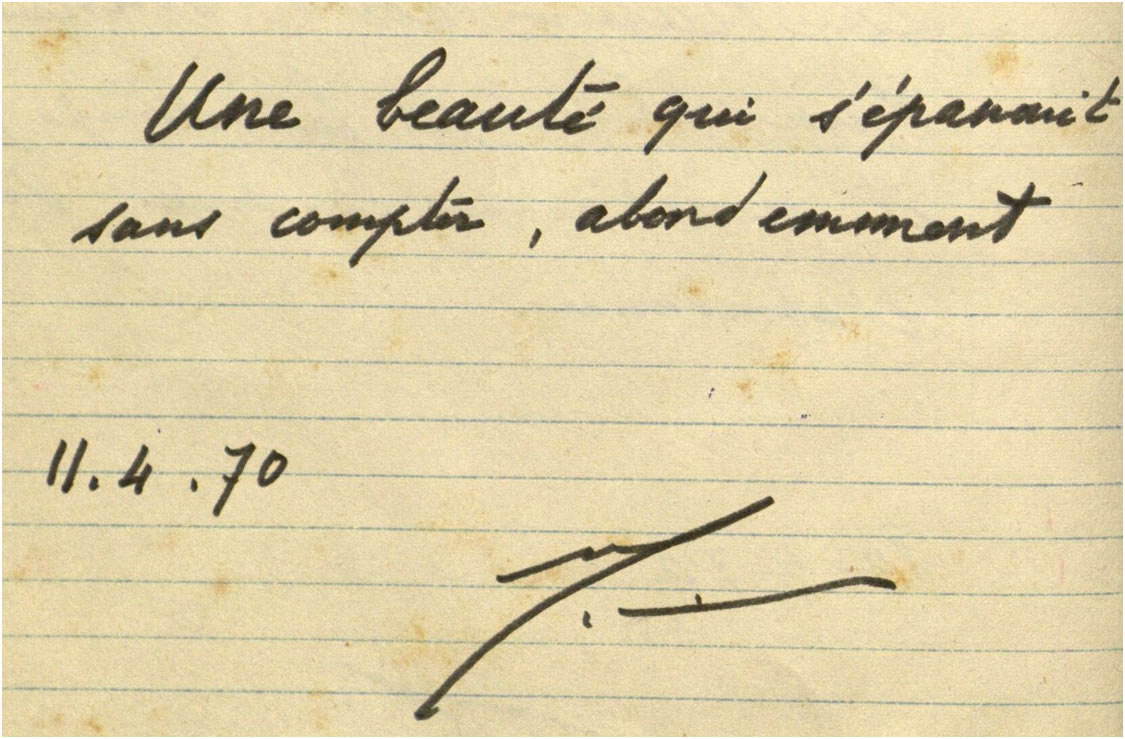 Une beauté qui s'épanouit
sans compter, abondemment
11.4.70